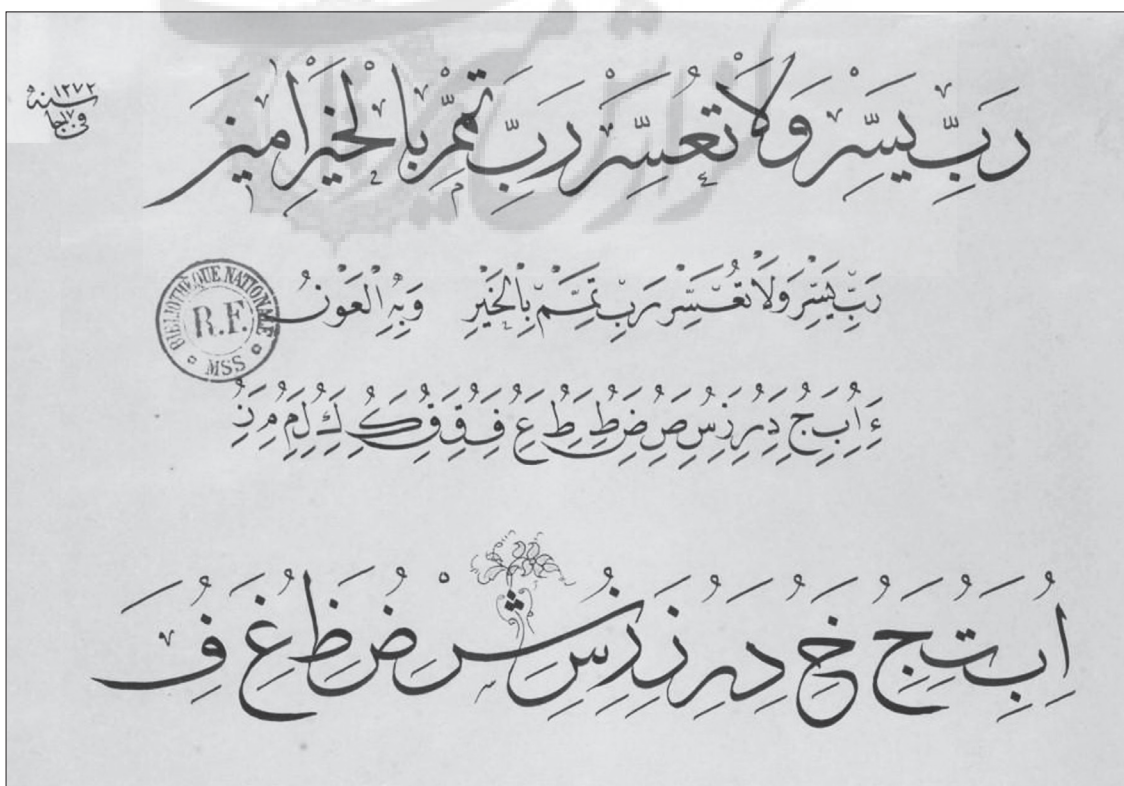 سنه ١٢٧٢
رَبِّ يَسِّرْ وَلَا تُعَسِّرْ رَبِّ تَمِّمْ بِالْخَيْرِ اٰمِينَ
رَبِّ يَسِّرْ وَلَا تُعَسِّرْ رَبِّ تَمِّمْ بِالْخَيْرِ وَبِهِ الْعَوْنُ
BIBLIOTHÈQUE NATIONALE
R.F.
MSS
ء ا ب ج د ر ز س ص ض ط ظ ع ف ق ف ك ك ل م م ن
ا ب ت ج خ د ر ز ز س س ض ظ غ ف